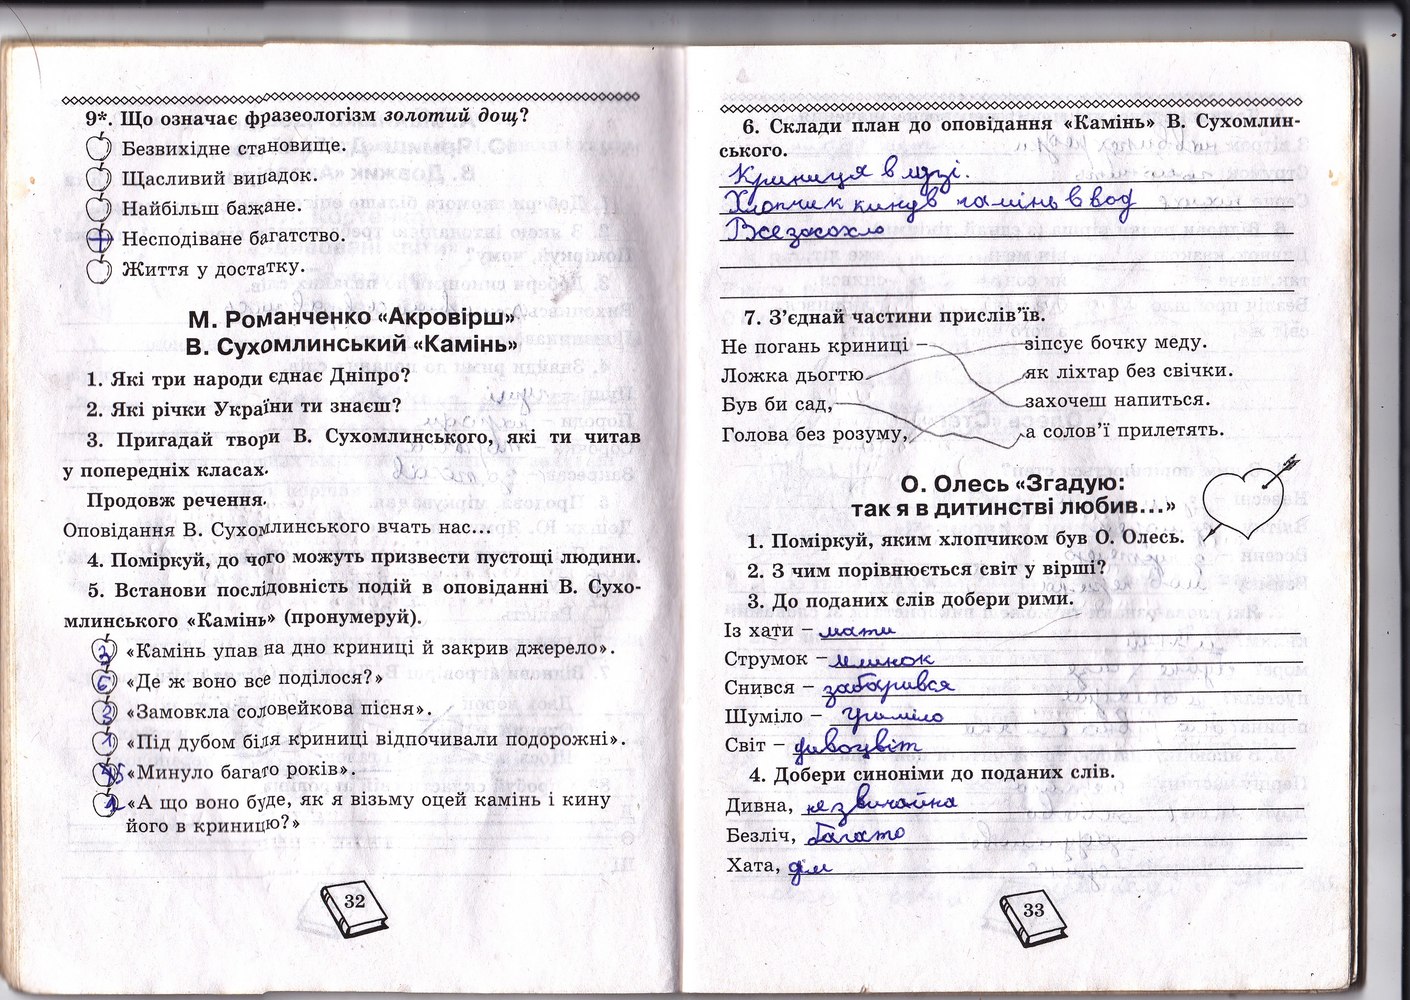 9*. Що означає фразеологізм золотий дощ?
Безвихідне становище.
Щасливий випадок.
Найбільш бажане.
Несподіване багатство.
Життя у достатку.
М. Романченко «Акровірш»
В. Сухомлинський «Камінь»
1. Які три народи єднає Дніпро?
2. Які річки України ти знаєш?
3. Пригадай твори В. Сухомлинського, які ти читав
у попередніх класах.
Продовж речення.
Оповідання В. Сухомлинського вчать нас...
4. Поміркуй, до чого можуть призвести пустощі людини.
5. Встанови послідовність подій в оповіданні В. Сухо-
млинського «Камінь» (пронумеруй).
«Камінь упав на дно криниці й закрив джерело».
6 «Де ж воно все поділося?»
«Замовкла соловейкова пісня».
1 «Під дубом біля криниці відпочивали подорожні».
5 «Минуло багато років».
2 «А що воно буде, як я візьму оцей камінь і кину
його в криницю?»
32
6. Склади план до оповідання «Камінь» В. Сухомлин-
ського.
Криниця в лузі.
Хлопчик кинув камінь в вод
Все засохло
7. З’єднай частини прислів’їв.
Не погань криниці – зіпсує бочку меду.
Ложка дьогтю як ліхтар без свічки.
Був би сад, захочеш напиться.
Голова без розуму, а солов’ї прилетять.
О. Олесь «Згадую:
так я в дитинстві любив...»
1. Поміркуй, яким хлопчиком був О. Олесь.
2. З чим порівнюється світ у вірші?
3. До поданих слів добери рими.
Із хати – мати
Струмок – млинок
Снився – забарився
Шуміло – гриміло
Світ – дивоцвіт
4. Добери синоніми до поданих слів.
Дивна, незвичайна
Безліч, багато
Хата, дім
33